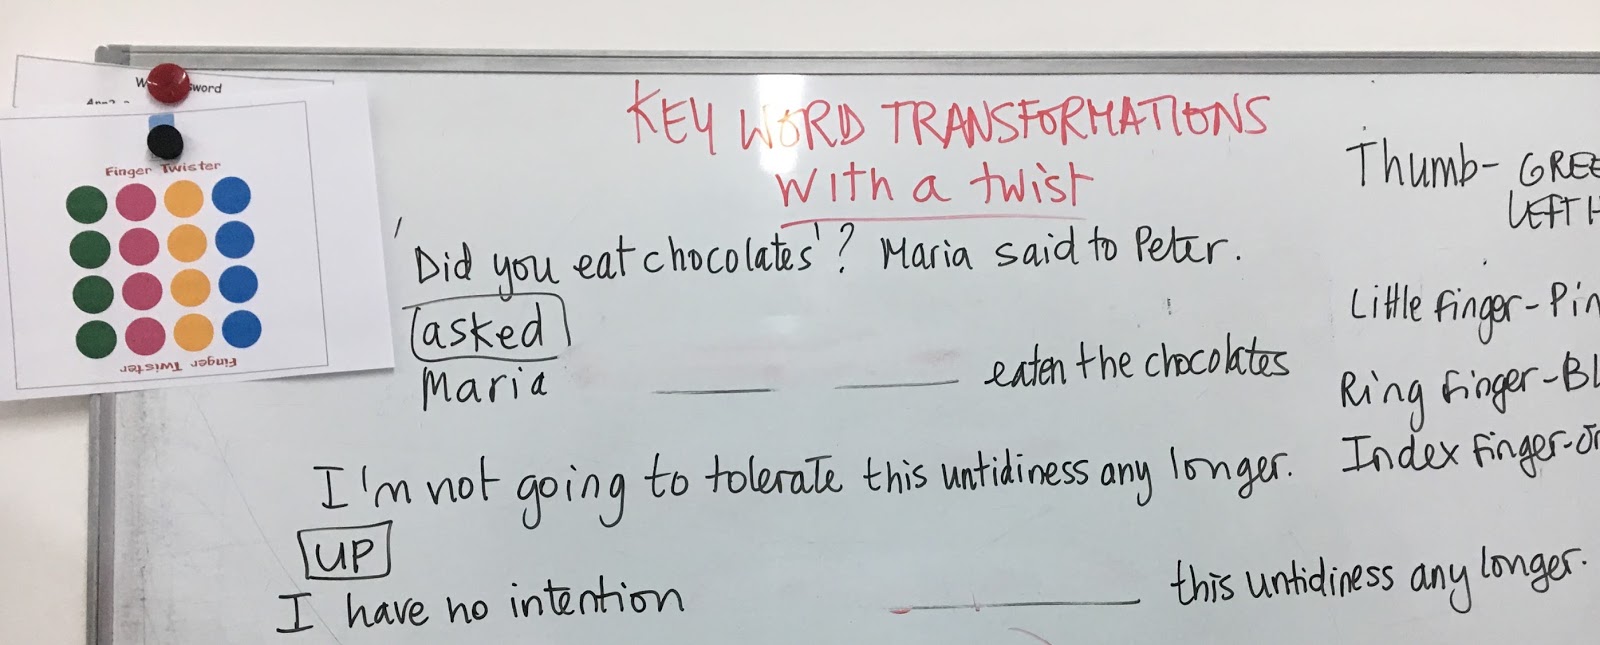 word
Finger Twister
Finger Twister
KEY WORD TRANSFORMATIONS
with a twist
'Did you eat chocolates'? Maria said to Peter.
asked
Maria ______ ______ eaten the chocolates
I'm not going to tolerate this untidiness any longer.
UP
I have no intention ____________ this untidiness any longer.
Thumb - GREE
LEFT H
Little finger - Pin
Ring finger - BL
Index finger - Or